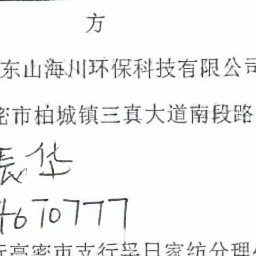 方
东山海川环保科技有限公司
密市柏城镇三真大道南段路
4670777
行高密市支行呈日家纺分理